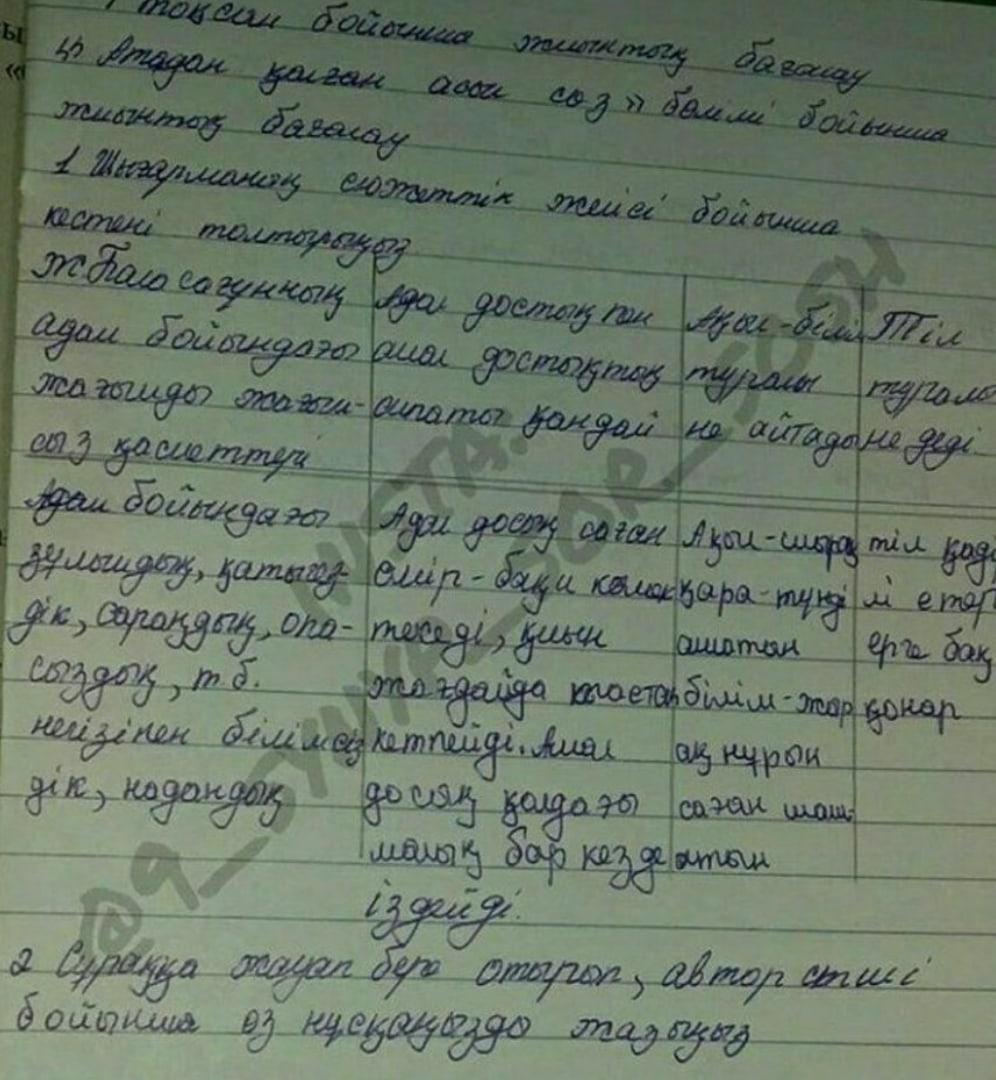 тоқсан бойынша жиынтық бағалау
«Атадан қалған асыл сөз» бөлімі бойынша
жиынтық бағалау
1 Шығарманың сюжеттік желісі бойынша
кестені толтырыңыз
Ж Баласағұнның
адам бойындағы
жағымды жағым-
сыз қасиеттері
Адал достық пен
амал достықтың
сипаты қандай
Ақыл-білім
туралы
не айтады
Тіл
туралы
не деді
Адам бойындағы
зұлымдық, қатыгез-
дік, сараңдық, опа-
сыздық, т.б.
негізінен білімсіз
дік, надандық
Адал досың саған
өмір-бақи көмек
теседі, қиын
жағдайда тастап
кетпейді. Амал
досың қолдағы
малың бар кезде
іздейді.
Ақыл-шырақ
қара-түнді
ашатын
білім-жар
ақ нұрын
саған шаш-
атын
тіл қад
м етер
ерге бақ
қонар
2 Сұраққа жауап бере отырып, автор стилі
бойынша өз нұсқаңызда жазыңыз
@9_SYNYP_SOR_SOSH